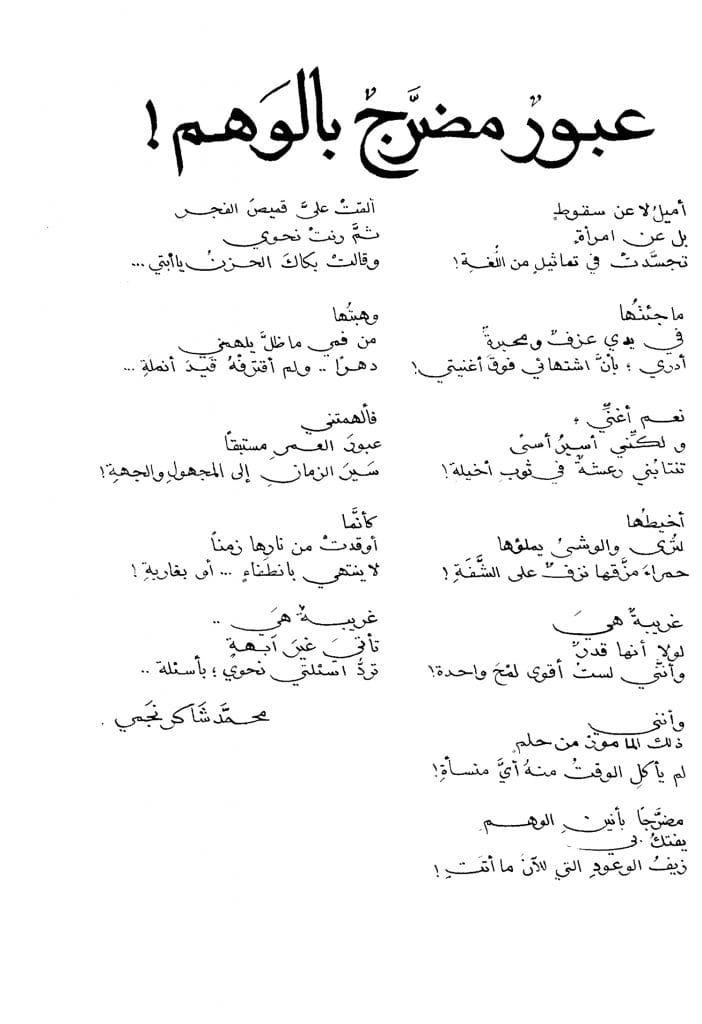 عبورٌ مضرَّجٌ بالوَهم !
أميلُ لا عن سقوطٍ
بل عن امرأةٍ
تجسَّدتْ في تماثيلٍ من اللُّغةِ !
ما جئتُها
في يدي عزفٌ ومحبرةٌ
أدري ؛ بأنَّ اشتهائي فوقَ أغنيتي !
نعم أغنِّي ؛
ولكنَّني أسيرُ أسىً
تنتابُني رعشةٌ في ثوبِ أخيلة !
أخيطُها
لتُرى والوشيُ يملؤها
حمراءَ مزَّقها نزفٌ على الشَّفَةِ !
غريبةٌ هيَ
لولا أنها قدرٌ
وأنَّني لستُ أقوى لمْحَ واحدة !
وأنني
ذلك المأموزُ من حلمٍ
لم يأكلِ الوقتُ منهُ أيَّ منسأةِ !
مضرَّجًا بأنينِ الوهمِ
يفتكُ بي
زيفُ الوعودِ التي للآنَ ما أتَتِ !
ألقتْ عليَّ قميصَ الفجرِ
ثمَّ رنتْ نحوي
وقالتْ بكاكَ الحزنُ ياأبتي ...
وهبتُها
من فمي ما ظلَّ يلهمني
دهرًا .. ولم أقترفْهُ قيدَ أنملةِ ...
فألهمتني
عبورَ العمرِ مستبقاً
سَيرَ الزمانِ إلى المجهولِ والجهةِ !
كأنَّما
أوقدتْ من نارِها زمناً
لا ينتهي بانطفاءٍ ... أو بغاربةِ !
غريبةٌ هيَ ..
تأتي غيرَ آبهةٍ
تردُّ اسئلتي نحوي ؛ بأسئلة ..
محمَّد شَاكر نجمي .